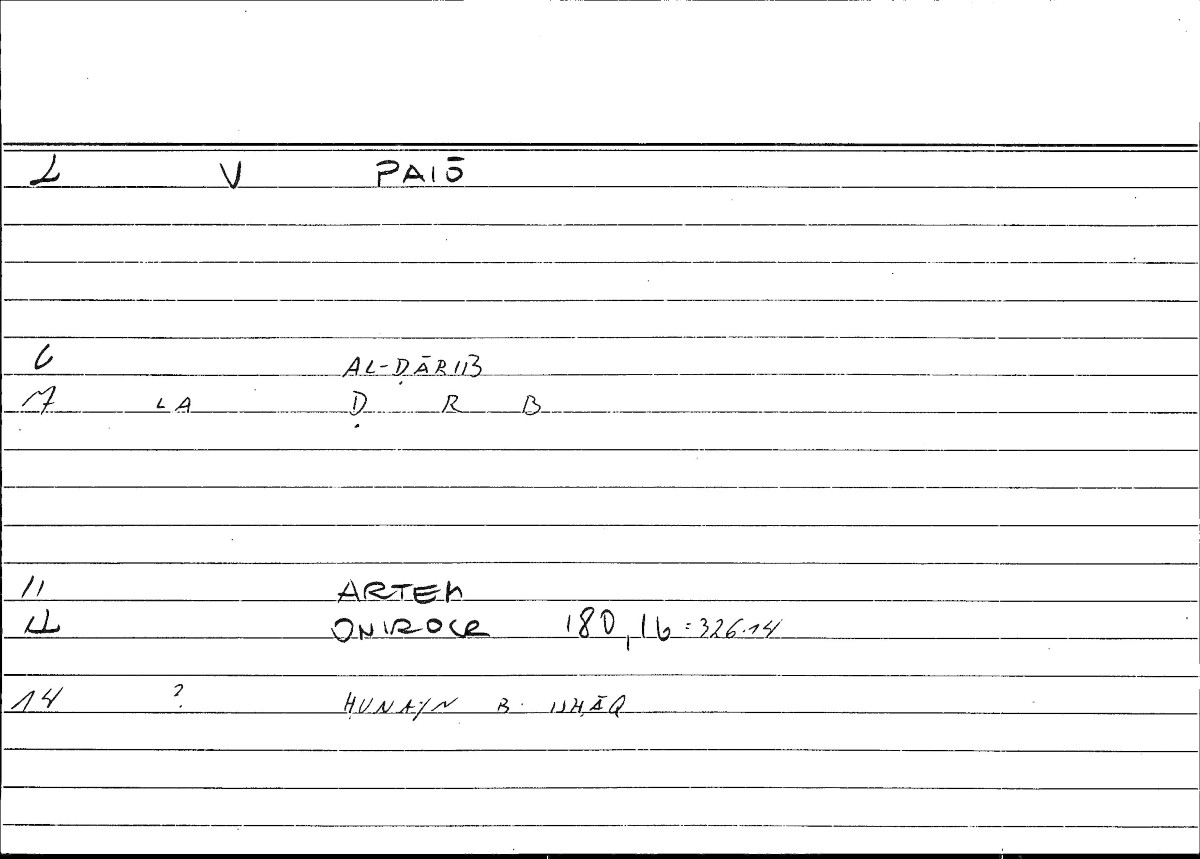 2 V PAIŌ
6 AL-ḌĀRIB
7 LA Ḍ R B
11 ARTEM
12 ONIROCR 180,16 = 326.14
14 ? ḤUNAYN B. ISḤĀQ